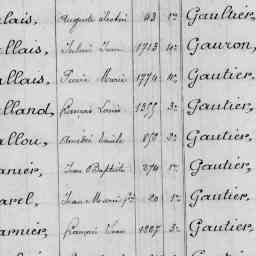 alais, Auguste 43 1re Gaultier,
allais, Julien Jean 1713 4e Gauron,
allais, Pierre Marie 1774 4e Gautier,
alland, François Louis 1355 3e Gautier,
allou, Amédée Emile 850 2e Gautier,
anier, Jean Baptiste 274 1re Gautier,
arel, Jean Marie 20 1re Gautier,
arnier, François 1207 3e Gautier,